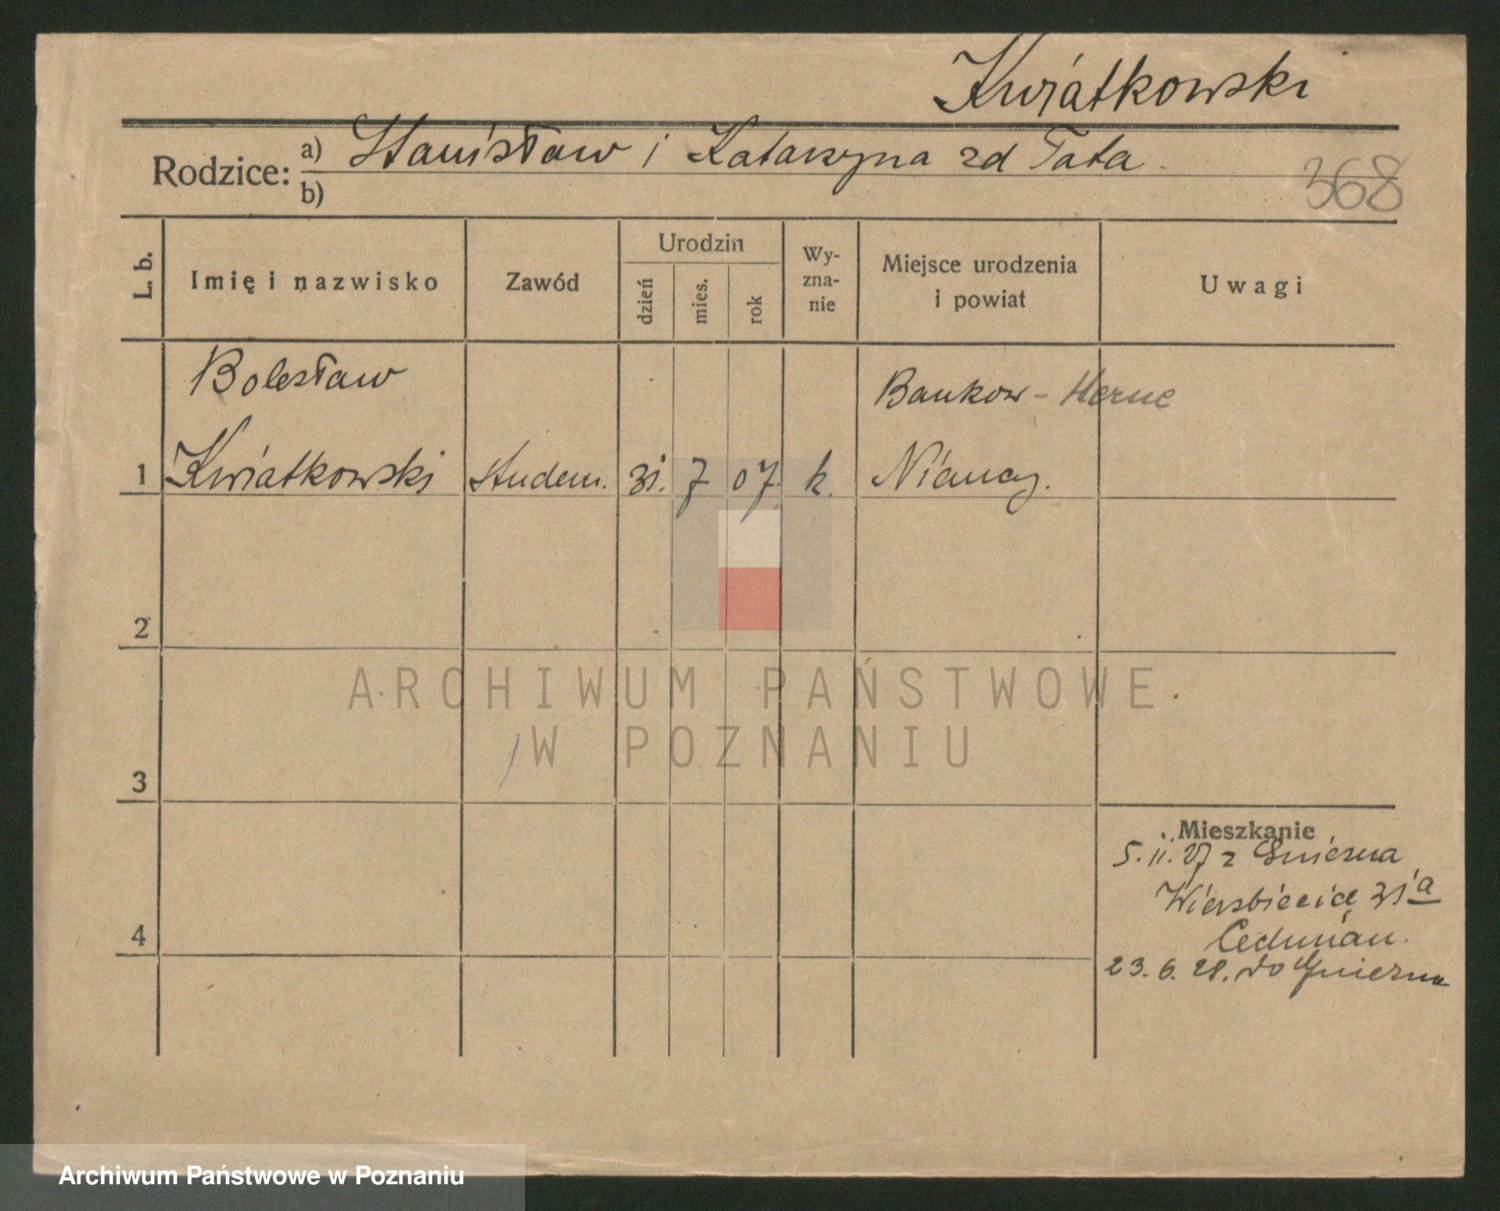 Kwiatkowski
Rodzice: a) Stanisław i Katarzyna zd Tata.
b)
368
L. b. Imię i nazwisko Zawód Urodzin dzień mies. rok Wyznanie Miejsce urodzenia i powiat Uwagi
Bolesław Baukow - Herne
1 Kwiatkowski studen. 31. 7 07. k. Niemcy.
2
3
4
Mieszkanie
5.11.27 z Gniezna
Wierzbięcice 31a
23.6.28. do Gniezna
ARCHIWUM PAŃSTWOWE
W POZNANIU
Archiwum Państwowe w Poznaniu